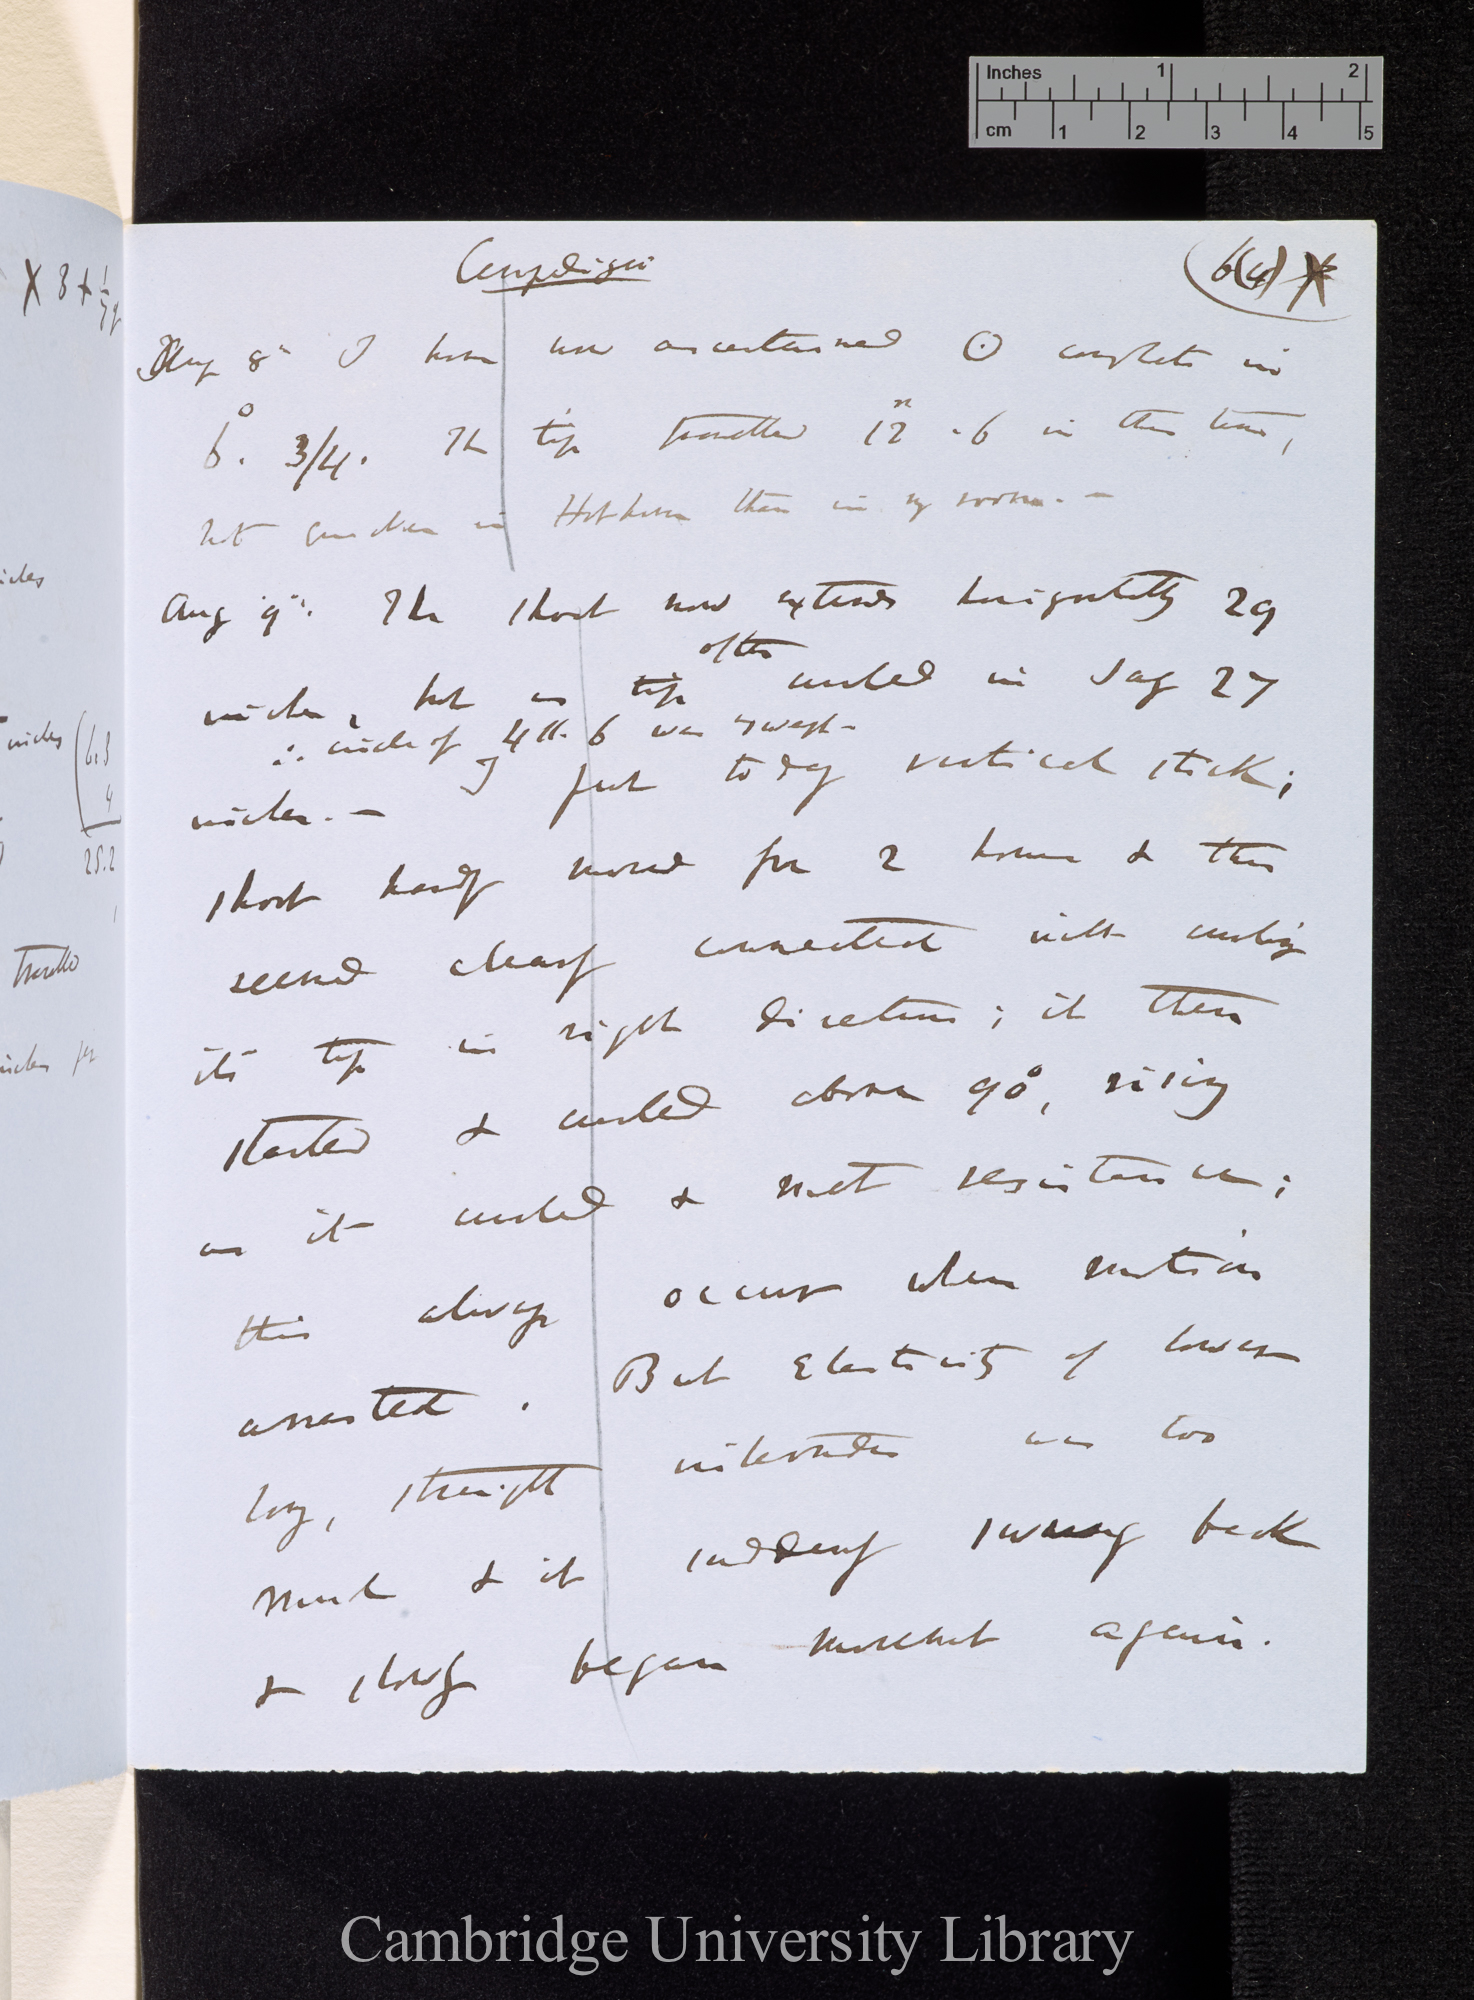 Inches 1 2
cm 1 2 3 4 5
Ceropegia
6(4)
X 8 +
Aug 8th I have now ascertained ⊙ complete in
6°. 3/4. The tip travelled 12 .6 in this time,
not quicker in Hothouse than in my room. —
Aug 9th. The shoot now extends horizontally 29
inches, but as tip often curled in say 27
∴ circle of 4ft. 6 was swept —
inches. — I put today vertical stick;
shoot hardly moved for 2 hours & this
seemed clearly connected with curling
its tip in right direction; it then
started & curled above 90°, rising
as it curled & met resistance;
this always occurs when motion
arrested. But elasticity of lower
long, straight internodes was too
much & it suddenly swung back
& slowly began movement again.
inches
6.3
4
25.2
inches per
Cambridge University Library